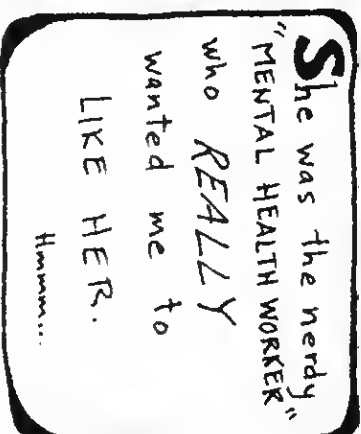 She was the nerdy
"MENTAL HEALTH WORKER"
who REALLY
wanted me to
LIKE HER.
Hmmm...